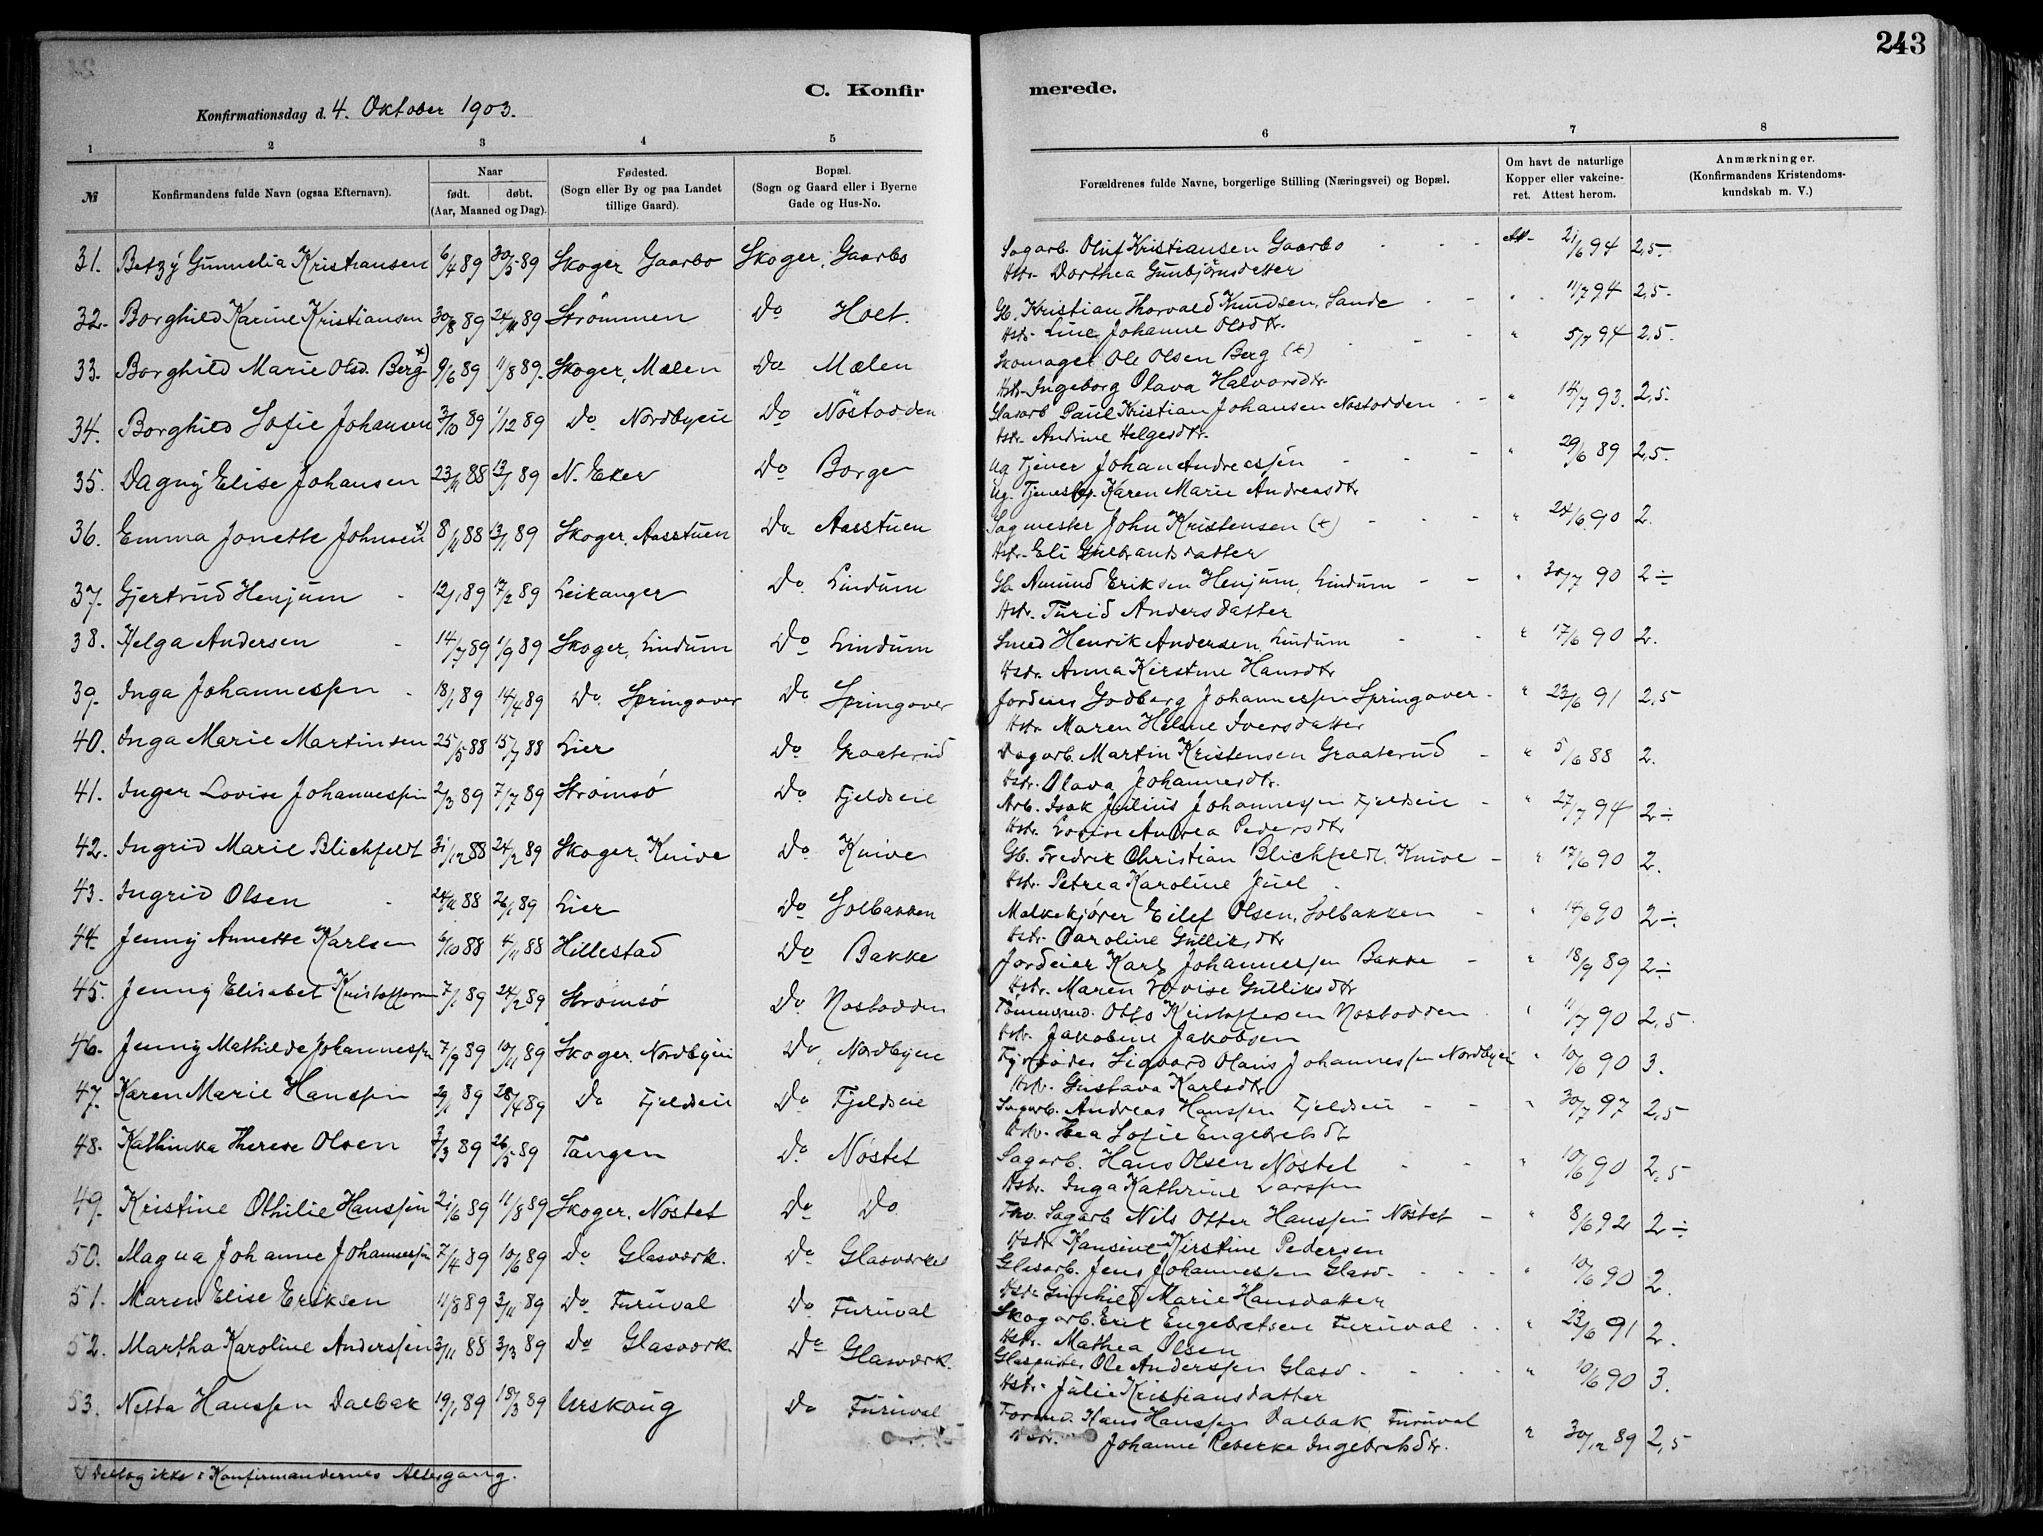 243
C. Konfir
merede.
Konfirmationsdag d. 4. Oktober 1903.
1 2 3 4 5 6 7 8
№ Konfirmandens fulde Navn (ogsaa Efternavn). Naar født. døbt. (Aar, Maaned og Dag). Fødested. (Sogn eller By og paa Landet tillige Gaard). Bopæl. (Sogn og Gaard eller i Byerne Gade og Hus-No. Forældrenes fulde Navne, borgerlige Stilling (Næringsvei) og Bopæl. Om havt de naturlige Kopper eller vakcineret. Attest herom. Anmærkninger. (Konfirmandens Kristendomskundskab m. V.)
31. Betzy Gunnelia Kristiansen 6/4 89 30/5 89 Skoger Gaarbo Skoger, Gaarbo Sagarb. Oluf Kristiansen Gaarbo Att. 21/6 94 2,5.
Hstr. Dorthea Gunbjørnsdatter
32. Borghild Karine Kristiansen 30/8 89 24/11 89 Strømmen Do Holt. Gb. Kristian Thorvald Knudsen, Sande " 11/7 94 2,5.
Hstr. Line Johanne Olsdtr.
33. Borghild Marie Olsd. Berg +) 9/6 89 11/8 89. Skoger, Mælen Do Mælen Skomager Ole Olsen Berg (+) " 5/7 94 2,5.
Hstr. Ingeborg Olava Halvorsdtr.
34. Borghild Sofie Johansen 3/10 89 1/12 89 Do Nordbyeie Do Nöstodden Glasarb Paul Kristian Johansen Nostodden " 14/7 93. 2,5.
Hstr. Andrine Helgesdtr.
35. Dagny Elise Johansen 23/11 88 13/1 89 N. Eker Do Borge Ug Tjener Johan Andreassen " 29/6 89 2,5.
Ug. Tjenestep. Karen Marie Andreasdtr
36. Emma Jonette Johnsen +) 8/11 88 13/1 89 Skoger, Aasstuen Do Aasstuen Sagmester John Kristensen (+) " 24/6 90 2.
Hstr. Eli Gulbrandsdatter
37. Gjertrud Henjum 12/1 89 17/2 89 Leikanger Do Lindum Gb. Amund Eriksen Henjum, Lindum " 30/7 90 2÷
Hstr. Turid Andersdatter
38. Helga Andersen 14/7 89 1/9 89 Skoger, Lindum Do Lindum Smed Henrik Andersen, Lindum " 17/6 90 2.
Hstr. Anna Kirstine Hansdtr
39. Inga Johannessen 18/1 89 14/4 89 Do Springover Do Springover Jordeier Godberg Johannessen Springover " 23/6 91 2,5
Hstr. Maren Helene Iversdatter
40. Inga Marie Martinsen 25/5 88 15/7 88 Lier Do Graaterud Dagarb. Martin Kristensen Graaterud " 5/6 88 2.
Hstr. Olava Johannesdtr.
41. Inger Lovise Johannessen 2/3 89 7/7 89 Strømsø Do Fjeldseie Arb. Isak Julius Johannessen Fjeldseie " 27/7 94 2÷
Hstr. Lovise Andrea Pedersdtr
42. Ingrid Marie Blichfeldt 31/12 88 24/2 89 Skoger, Knive Do Knive Gb. Fredrik Christian Blichfeldt, Knive " 17/6 90 2.
Hstr. Petrea Karoline Juel
43. Ingrid Olsen 24/11 88 26/1 89 Lier Do Solbakken Melkekjører Eilef Olsen, Solbakken " 14/6 90 2÷.
Hstr. Caroline Gulliksdtr
44. Jenny Annette Karlsen 6/10 88 4/11 88 Hillestad Do Bakke Jordeier Karl Johannessen Bakke " 18/9 89 2÷
Hstr. Maren Lovise Gulliksdtr
45. Jenny Elisabet Kristoffersen 7/1 89 24/2 89 Strømsø Do Nostodden Tømmermd. Otto Kristoffersen Nostodden " 11/7 90 2,5
Hstr. Jakobine Jakobsen
46. Jenny Mathilde Johannessen 7/9 89 10/11 89 Skoger, Nordbyeie Do, Nordbyeie Fyrbøder Sigvard Olaus Johannessen Nordbyeie " 10/6 90 3.
Hstr. Gustava Karlsdtr
47. Karen Marie Hanssen 29/1 89 28/4 89 Do Fjeldseie Do Fjeldseie Sagarb. Andreas Hanssen Fjeldseie " 30/7 97 2,5
Hstr. Thea Sofie Engebretsdtr
48. Kathinka Therese Olsen 3/3 89 26/5 89 Tangen Do Nøstet Sagarb. Hans Olsen Nøstet " 10/6 90 2,5
Hstr. Inga Kathrine Larssen
49. Kristine Othilie Hanssen 21/6 89 11/8 89 Skoger, Nøstet Do Do Fhv. Sagarb Nils Otter Hanssen Nøstet " 8/6 92 2÷
Hstr Hansine Kirstine Pedersen
50. Magna Johanne Johannessen 7/4 89 10/6 89 Do Glasværk. Do Glasværket Glasarb. Jens Johannessen Glasv. " 10/6 90 2.
Hstr Gunhild Marie Hansdatter
51. Maren Elise Eriksen 11/8 89 3/11 89 Do Furuval Do Furuval Skogarb. Erik Engebretsen Furuval " 23/6 91 2.
Hstr. Mathea Olsen
52. Martha Karoline Anderssen 3/11 88 3/3 89 Do Glasværk. Do Glasværk. Glaspuster Ole Anderssen Glasv. " 10/6 90 3.
Hstr. Julie Kristiansdatter
53. Netta Hanssen Dalbak 19/1 89 18/3 89 Urskoug Do Furuval Formd. Hans Hanssen Dalbak, Furuval " 30/12 89 2,5
Hstr. Johanne Rebekke Ingebretsdtr.
+) Deltog ikke i Konfirmandernes Altergang.